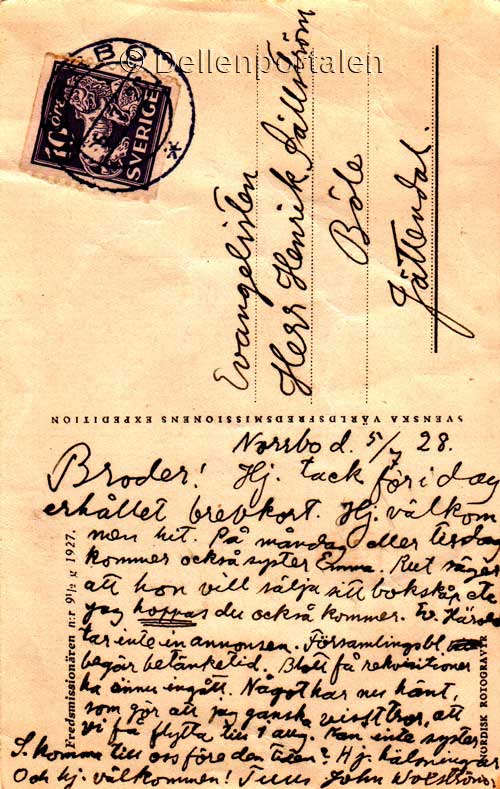 © Dellenportalen
B
10 ÖRE
SVERIGE
Evangelisten
Herr Henrik Sällström
Böle
Jättendal.
SVENSKA VÄRLDSFREDSMISSIONENS EXPEDITION
Norrbo d. 5/7 28.
Broder! Hj. tack för i dag
erhållet brevkort. Hj. välkom
men hit. På måndag eller tisdag
kommer också syster Emma. säger
att hon vill sälja sitt bokskåp etc
jag hoppas du också kommer. Tv. Härold
tar inte in annonsen. Församlingsbl.
begär betänketid. Blott få rekvisitioner
ha ännu ingått. Något har nu hänt,
som gör att jag ganska visst tror, att
vi få flytta till 1 aug. Kan inte syster
S. komma till oss före den tiden? Hj. hälsningar
Och hj. välkommen! Tuus John Wolström.
Fredsmissionären n:r 9 1/2 g 1927.
NORDISK ROTOGRAVYR